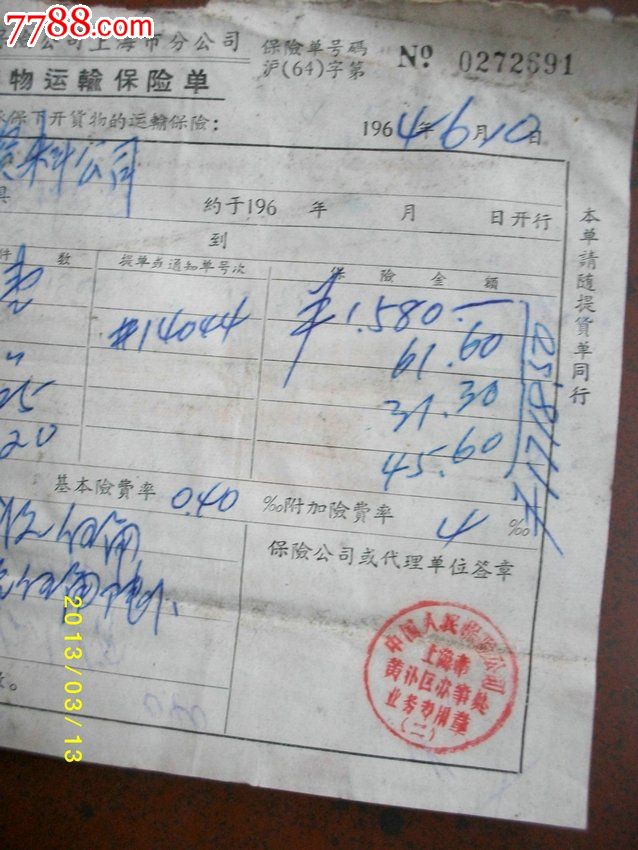 7788.com
公司上海市分公司
保險单号碼
沪(64)字第
No 0272691
物运輸保险单
保下开貨物的运輸保險:
1964年6月10日
料公司
約于196 年 月 日开行
到
件 数
提单或通知单号次
保 險 金 額
#14044
¥1.580.—
61.60
31.30
45.60
25
20
本单請随提貨单同行
基本險費率 0.40 ‰附加險費率 4 ‰
保險公司或代理单位签章
中国人民保險公司
上海市
黄浦区办事处
业务专用章
(二)
2013/03/13